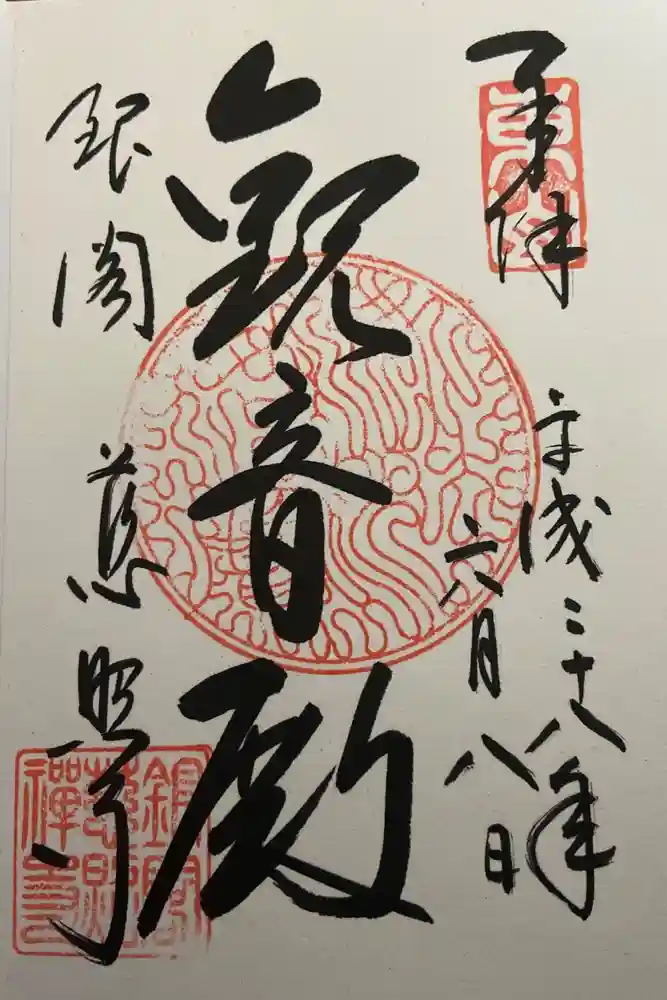 奉拝
平成二十八年
六月八日
観音殿
銀閣
慈照寺
銀閣
慈照
禅寺